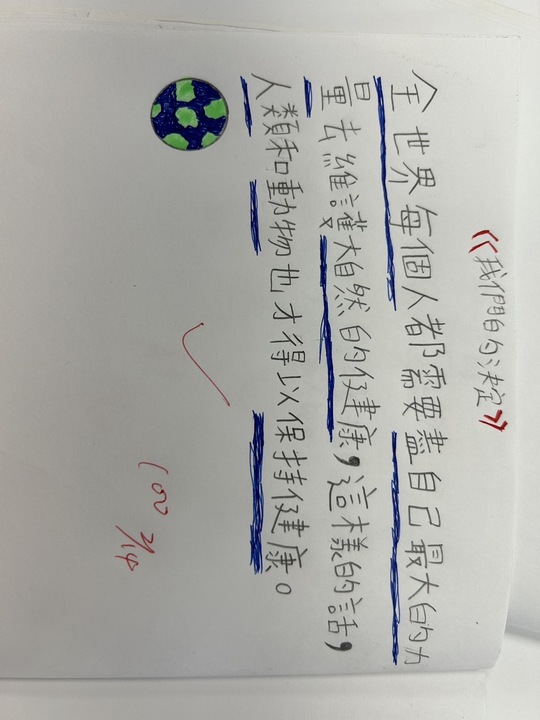 《我們的決定》
全世界每個人都需要盡自己最大的力
量去維護大自然的健康，這樣的話，
人類和動物也才得以保持健康。
100 2/14